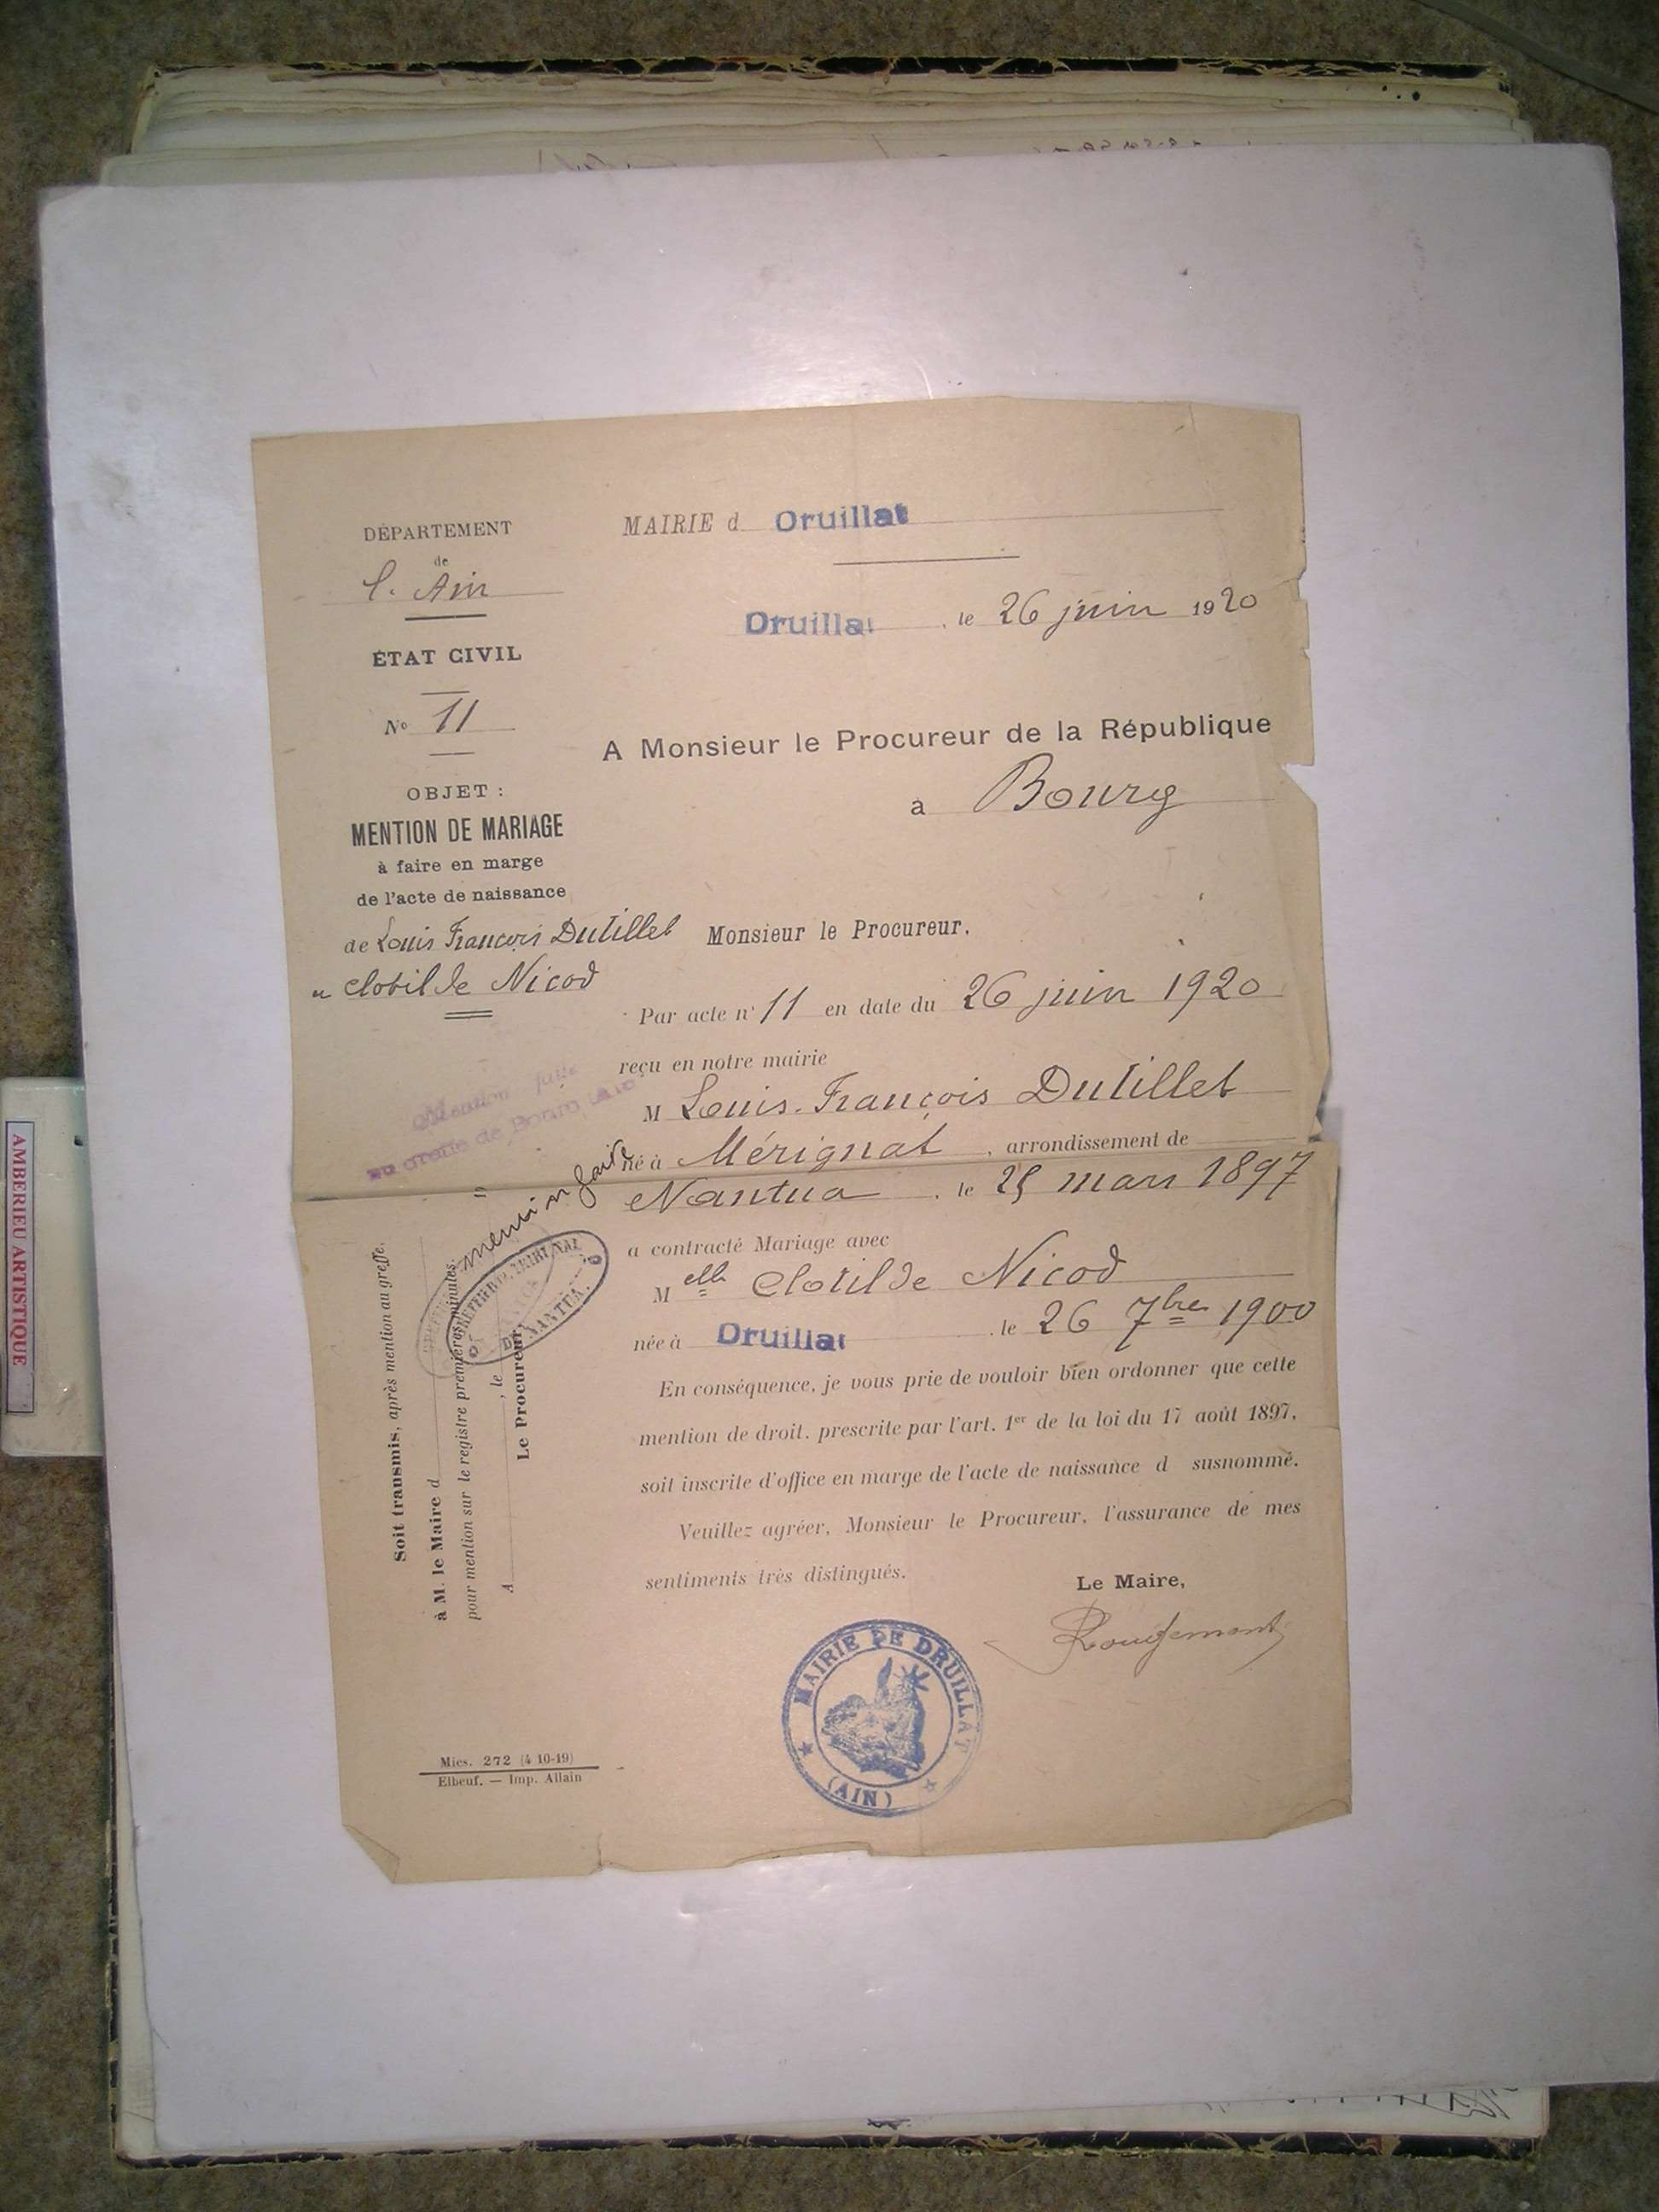 DÉPARTEMENT
de
l'Ain
ÉTAT CIVIL
No 11
OBJET :
MENTION DE MARIAGE
à faire en marge
de l'acte de naissance
de Louis François Dutillet
" Clotilde Nicod
MAIRIE d Druillat
Druillat, le 26 juin 1920
A Monsieur le Procureur de la République
à Bourg
Monsieur le Procureur,
Par acte n° 11 en date du 26 juin 1920
reçu en notre mairie
M Louis-François Dutillet
né à Mérignat, arrondissement de
Nantua, le 25 mars 1897
a contracté Mariage avec
Melle Clotilde Nicod
née à Druillat, le 26 7bre 1900
En conséquence, je vous prie de vouloir bien ordonner que cette
mention de droit, prescrite par l'art. 1er de la loi du 17 août 1897,
soit inscrite d'office en marge de l'acte de naissance d susnommé.
Veuillez agréer, Monsieur le Procureur, l'assurance de mes
sentiments très distingués.
Le Maire,
Rougemont
MAIRIE DE DRUILLAT
(AIN)
Mention faite
au greffe de Bourg
mention faite
TRIBUNAL
NANTUA
Soit transmis, après mention au greffe,
à M. le Maire d
pour mention sur le registre premières minutes.
A , le
Le Procureur,
Mies. 272 (4 10-19)
Elbeuf. — Imp. Allain
AMBERIEU ARTISTIQUE